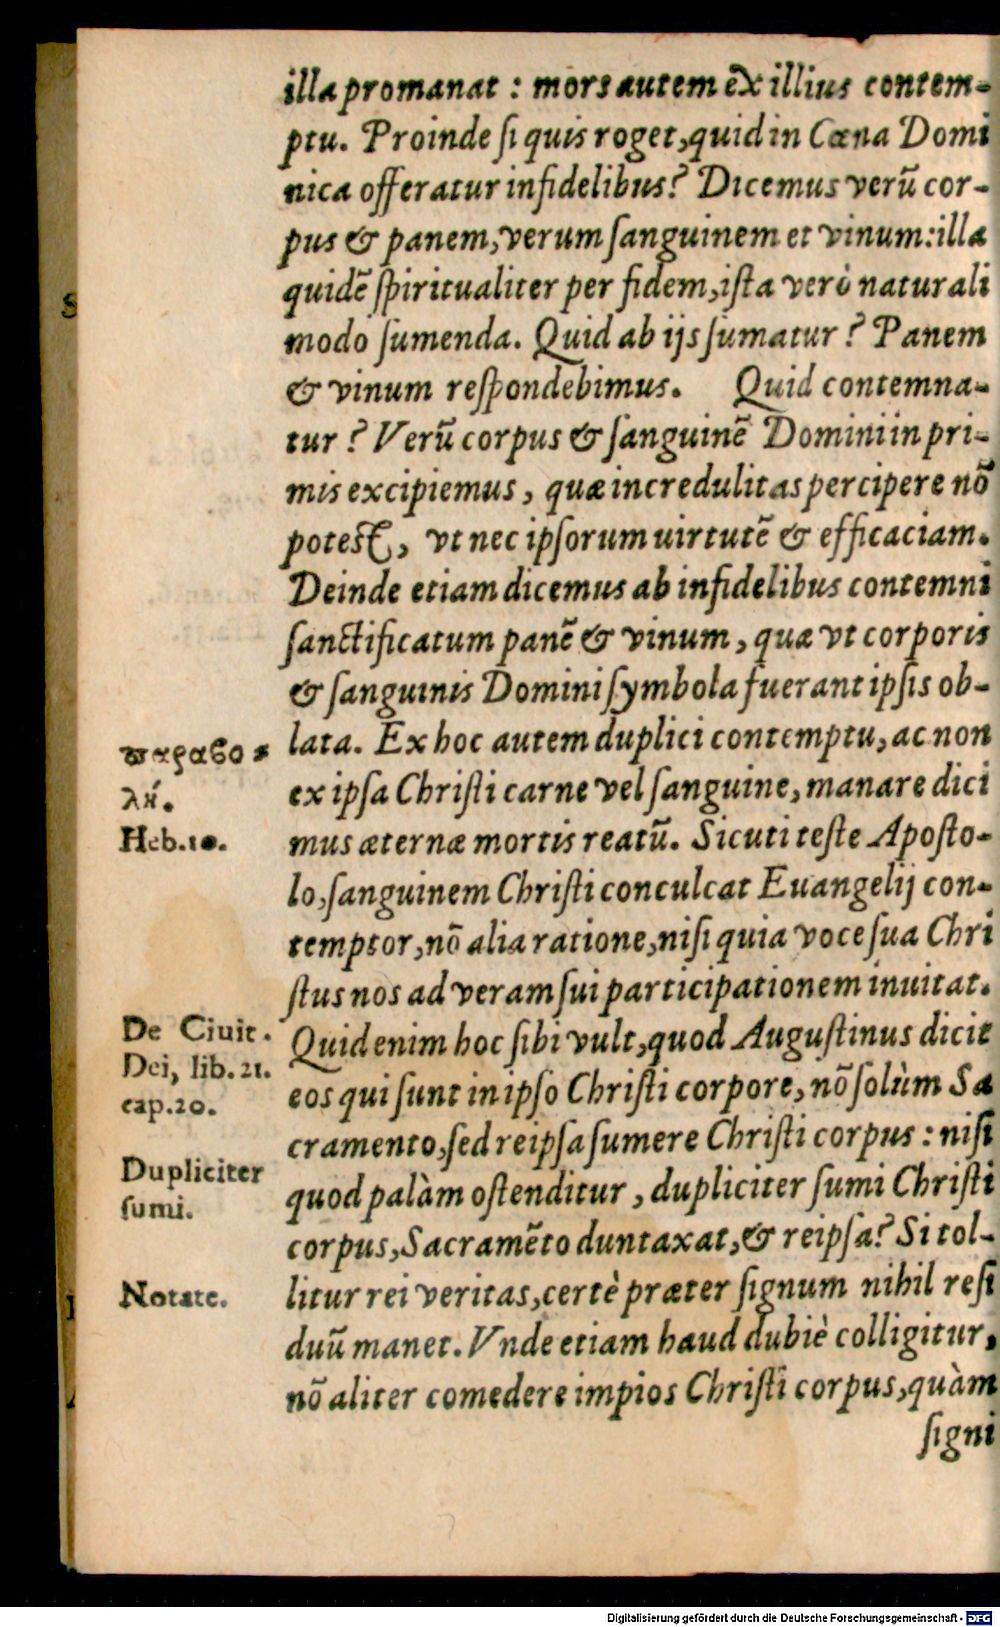 illa promanat : mors autem ex illius contem-
ptu. Proinde ſi quis roget, quid in Cœna Domi
nica offeratur infidelibus? Dicemus verū cor-
pus & panem, verum ſanguinem et vinum: illa
quidē ſpiritualiter per fidem, iſta verò naturali
modo ſumenda. Quid ab ijs ſumatur ? Panem
& vinum reſpondebimus. Quid contemna-
tur ? Verū corpus & ſanguinē Domini in pri-
mis excipiemus, quæ incredulitas percipere nō
poteſt, vt nec ipſorum uirtutē & efficaciam.
Deinde etiam dicemus ab infidelibus contemni
ſanctificatum panē & vinum, quæ vt corporis
& ſanguinis Domini ſymbola fuerant ipſis ob-
lata. Ex hoc autem duplici contemptu, ac non
ex ipſa Chriſti carne vel ſanguine, manare dici
mus æternæ mortis reatū. Sicuti teſte Apoſto-
lo, ſanguinem Chriſti conculcat Euangelij con-
temptor, nō alia ratione, niſi quia voce ſua Chri
ſtus nos ad veram ſui participationem inuitat.
Quid enim hoc ſibi vult, quod Auguſtinus dicit
eos qui ſunt in ipſo Chriſti corpore, nō ſolùm Sa
cramento, ſed reipſa ſumere Chriſti corpus : niſi
quod palàm oſtenditur, dupliciter ſumi Chriſti
corpus, Sacramēto duntaxat, & reipſa? Si tol-
litur rei veritas, certè præter ſignum nihil reſi
duū manet. Vnde etiam haud dubiè colligitur,
nō aliter comedere impios Chriſti corpus, quàm
ſigni
ϖαραϐο-
λή.
Heb.10.
De Ciuit.
Dei, lib. 21.
cap.20.
Dupliciter
ſumi.
Notate.
Digitalisierung gefördert durch die Deutsche Forschungsgemeinschaft - DFG